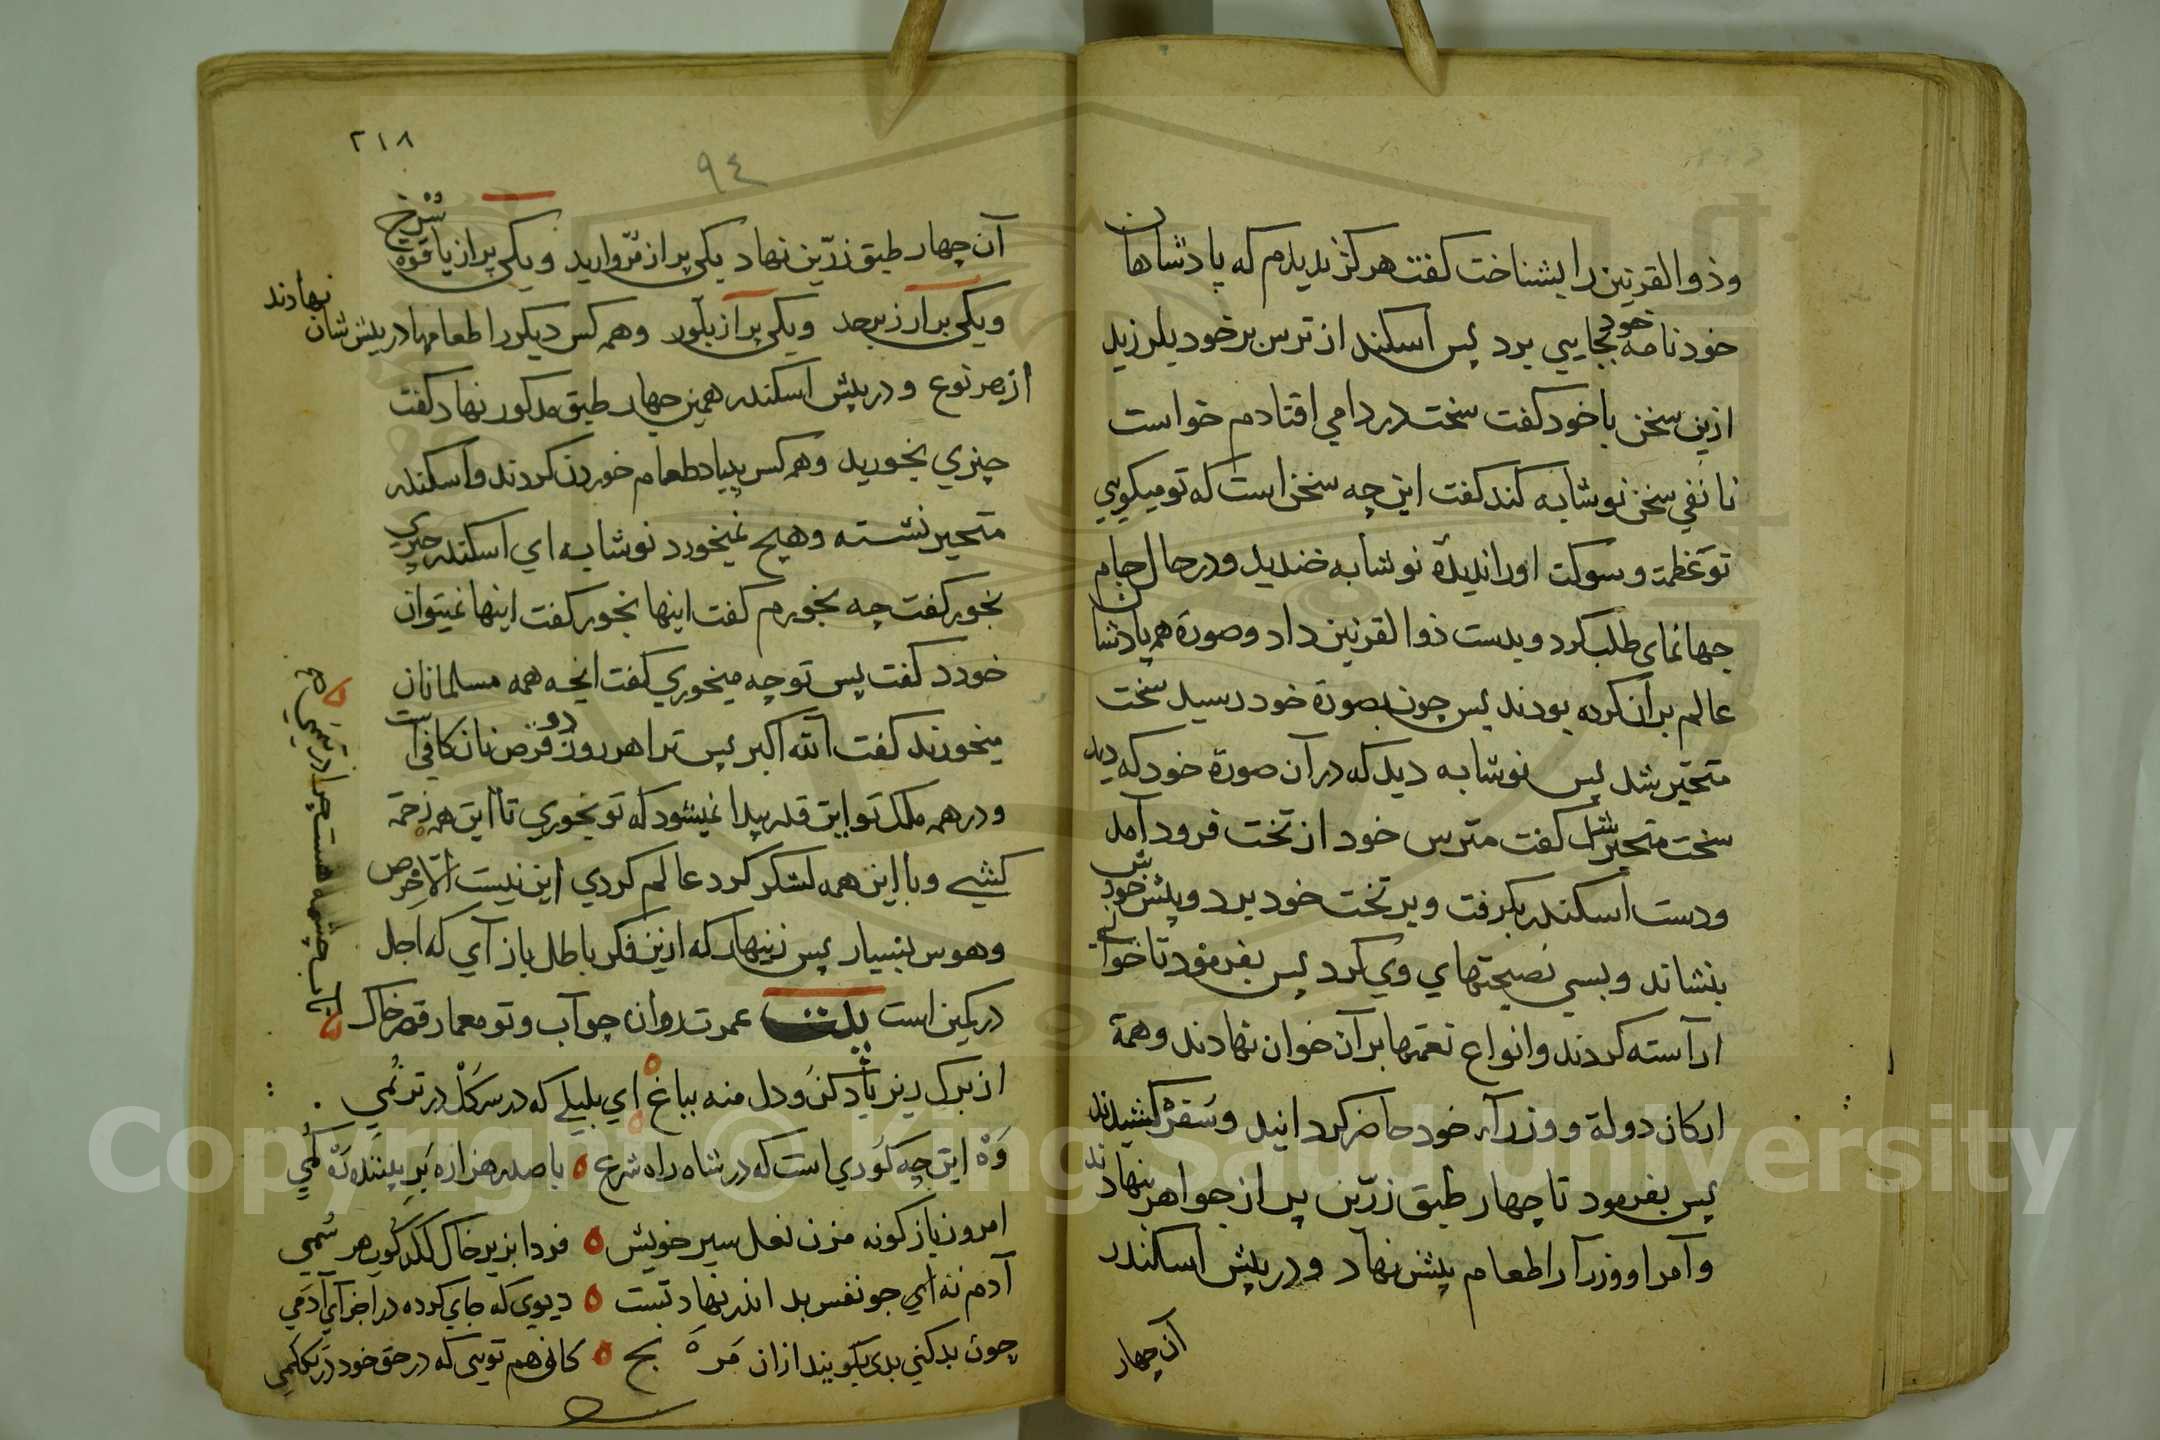 وذو القرنین را بشناخت کفت هرکز ندیدم که پادشاهان
خود نامه خود بجایی برد پس اسکند از ترس بر خود بلرزید
ازین سخن باخود کفت سخت در دامی افتادم خواست
تا نفی سخن نوشابه کند کفت این چه سخن است که تو میکویی
تو عظمت وسوکت اورا ندیدۀ نوشابه خندید ودرحال جام
جهانمای طلب کرد وبدست ذوالقرنین داد وصورة همه پادشا
عالم بران کرده بودند پس چون بصورة خود رسید سخت
متحیر شد پس نوشابه دید که در آن صورة خود که دید
سخت متحیر شد کفت مترس خود از تخت فرود آمد
ودست اسکندر بکرفت وبر تخت خود برد وپیش خودش
بنشاند وبسی نصیحتهای وی کرد پس بفرمود تا خوانی
آراسته کردند وانواع نعمتها بر آن خوان نهادند وهمه
ارکان دولة ووزرآء خود حاضر کردانید وسفره کشیدند
پس بفرمود تا چهار طبق زرین پر از جواهر بنهادند
وآمرا ووزرآ را طعام پیش نهاد ودر پیش اسکندر
آن چهار
٢١٨
٩٤
آن چهار طبق زرّین نهاد یکی پر از مرّوارید ویکی پر از یاقوة سُرخ
ویکی پر آز زبرجد ویکی پر آز بلّور وهمه کس دیکر را طعامها در پیش شان نهادند
از هر نوع ودر پیش اسکندر همین چهار طبق مدکور نهاد کفت
چیزی بخورید وهمه کس بنیاد طعام خوردن کردند واسکندر
متحیر نشسته وهیچ نمیخورد نوشابه ای اسکندر چیزی
بخور کفت چه بخورم کفت اینها بخور کفت اینها نمیتوان
خورد کفت پس تو چه میخوری کفت انچه همه مسلمانان
میخورند کفت آلله اکبر پس ترا هر روز دو قرص نان کافی است
ودر همه ملک تو این قدر پیدا نمیشود که تو بخوری تا این همه زحمة
کشی وبا این همه لشکر کرد عالم کردی این نیست الّا حرص
وهوس بسیار پس زینهار که ازین فکر باطل باز آی که اجل
در کمین است بیت عمرت روان چو آب وتو معمار قصر خاک
از برک ریز یاد کن ودل منه بباغ ای بلبلی که در سر کل در ترنّمی
وَهْ این چه کوری است که در شاه راه شرع با صد هزاره پیر بیننده رَه کمی
امروز باز کونه مزن نعل سیر خویش فردا بزیر خاک لکد کوب هر سُمی
آدم نه ای چو نفس بد اندر نهاد تست دیوی که جای کرده در اجزآی آدمی
چون بد کنی بدی بکویند ازان مَرَه نج کانی هم تویی که در حق خود
بر آب چشمه هست چرا در تیممی صح